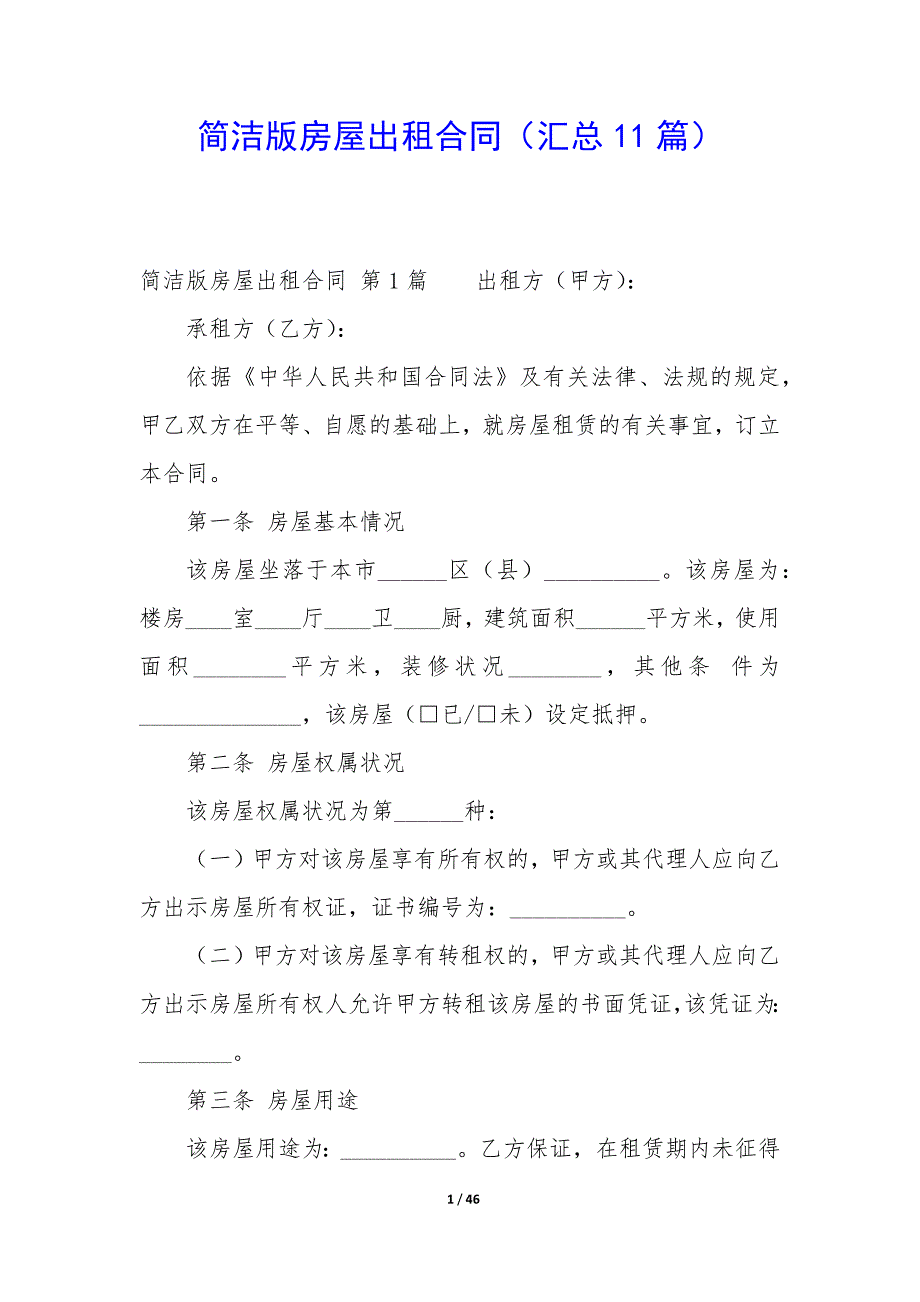 简洁版房屋出租合同（汇总 11 篇）
简洁版房屋出租合同 第 1 篇　　出租方（甲方）：
承租方（乙方）：
依据《中华人民共和国合同法》及有关法律、法规的规定，
甲乙双方在平等、自愿的基础上，就房屋租赁的有关事宜，订立
本合同。
第一条 房屋基本情况
该房屋坐落于本市______区（县）__________。该房屋为：
楼房____室____厅____卫____厨，建筑面积______平方米，使用
面积________平方米，装修状况________，其他条 件为
______________，该房屋（□已/□未）设定抵押。
第二条 房屋权属状况
该房屋权属状况为第______种：
（一）甲方对该房屋享有所有权的，甲方或其代理人应向乙
方出示房屋所有权证，证书编号为：__________。
（二）甲方对该房屋享有转租权的，甲方或其代理人应向乙
方出示房屋所有权人允许甲方转租该房屋的书面凭证，该凭证为：
________。
第三条 房屋用途
该房屋用途为：__________。乙方保证，在租赁期内未征得
1 / 46